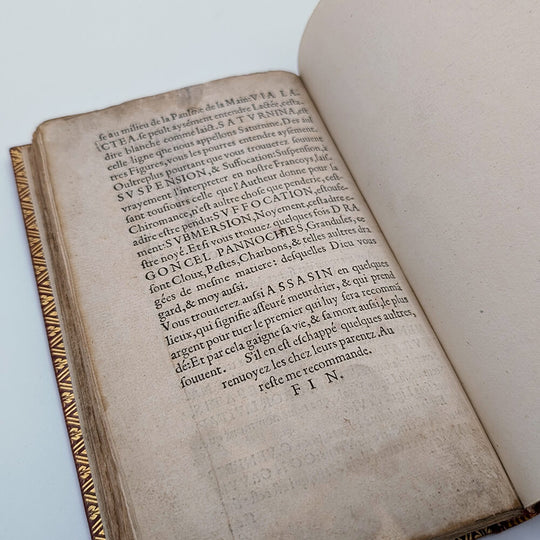 ſe au milieu de la Paulme de la Main: VIA LA-
CTEA. ſe peult ayſément entendre Lactée, c'eſta
dire blanche comme laict. SATVRNINA, eſt
celle ligne que nous appellons Saturnine. Des aul
tres Figures, vous les pourrez entendre ayſement.
Oultreplus pourtant que vous trouuerez ſouuent
SVSPENSION, & Suffocation: Suſpenſion, à
vrayement l'interpreter en noſtre Francoys, laiſ-
ſant touſiours celle que l'Autheur donne pour la
Chiromance, n'eſt aultre choſe que penderie, ceſt-
adire eſtre pendu: SVFFOCATION, eſtouſe-
ment: SVBMERSION, Noyement, ceſtadire e-
ſtre noyé. Et ſi vous trouuez quelques fois DRA
GONCEL PANNOCHIES, Grandules, ce
ſont Cloux, Peſtes, Charbons, & telles aultres dra
gées de meſme matiere: deſquelles Dieu vous
gard, & moy auſsi.
Vous trouuerez auſsi ASSASIN en quelques
lieux, qui ſignifie aſſeuré meurdrier, & qui prend
argent pour tuer le premier qui luy ſera recommã
dé: Et par cela gaigne ſa vie, & ſa mort auſsi, le plus
ſouuent. S'il en eſt eſchappé quelques aultres,
renuoyez les chez leurs parentz. Au
reſte me recommande.
FIN.